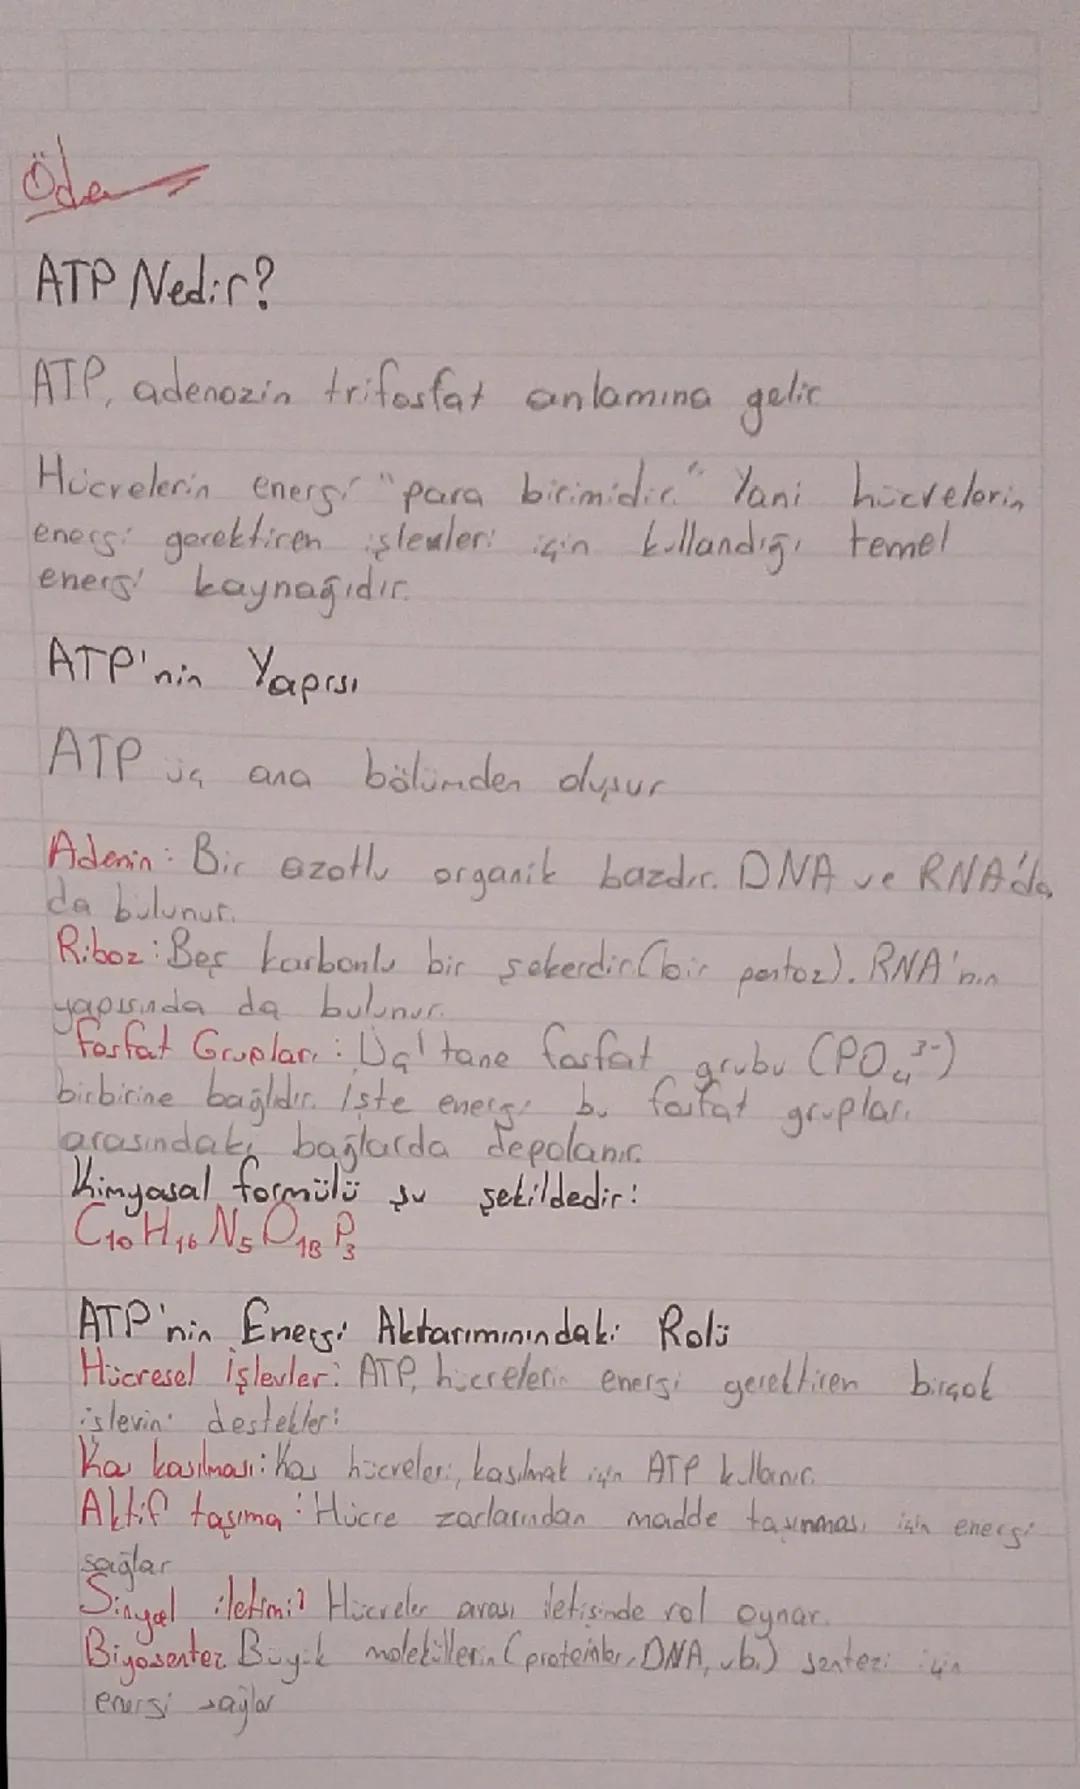 ATP Nedir?
ATP, adenozin trifosfat anlamına gelir
Hücrelerin enerji "para birimidir." Yani hücrelerin
enerji gerektiren işlemleri için kullandığı temel
enerji kaynağıdır.
ATP'nin Yapısı
ATP üç ana bölümden oluşur
Adenin: Bir azotlu organik bazdır. DNA ve RNA'da
da bulunur.
Riboz: Beş karbonlu bir şekerdir (bir pentoz). RNA'nın
yapısında da bulunur.
Fosfat Grupları: Üç tane fosfat grubu (PO₄³⁻)
birbirine bağlıdır. İşte enerji bu fosfat grupları
arasındaki bağlarda depolanır.
Kimyasal formülü şu şekildedir:
C₁₀H₁₆N₅O₁₃P₃
ATP'nin Enerji Aktarımınındaki Rolü
Hücresel işlevler: ATP, hücrelerin enerji gerektiren birçok
işlevini destekler:
Kas kasılması: Kas hücreleri, kasılmak için ATP kullanır.
Aktif taşıma: Hücre zarlarından madde taşınması için enerji
sağlar
Sinyal iletimi: Hücreler arası iletişimde rol oynar.
Biyosentez Büyük moleküllerin (proteinler, DNA, vb.) sentezi için
enerji sağlar